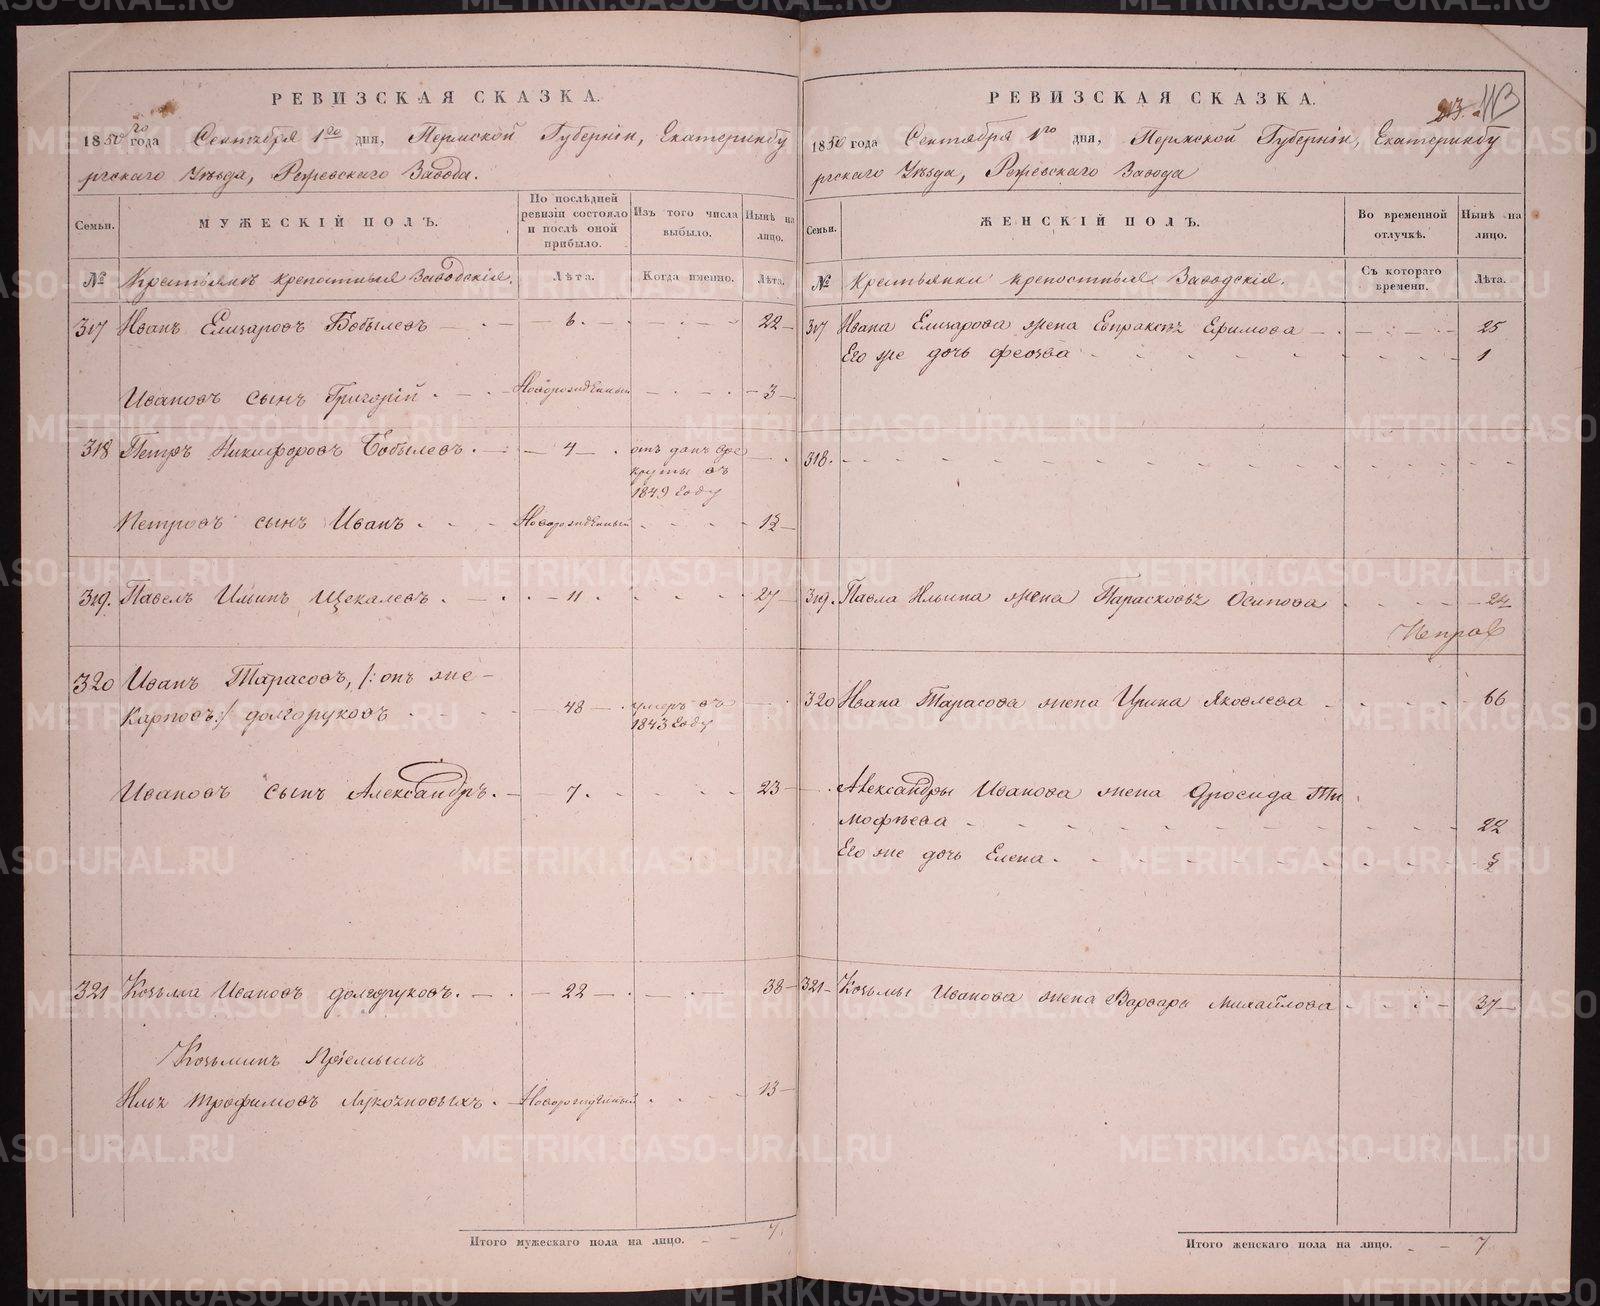 РЕВИЗСКАЯ СКАЗКА.
1850го года Сентября 1го дня, Пермской Губернiи, Екатеринбу
ргскаго Уѣзда, Режевскаго Завода.
Семьи.
МУЖЕСКIЙ ПОЛЪ.
По послѣдней ревизiи состояло и послѣ оной прибыло.
Изъ того числа выбыло.
Нынѣ на лицо.
№
Крестьянъ крепостныя Заводскiя.
Лѣта.
Когда именно.
Лѣта.
317 Иванъ Елизаровъ Бобылевъ 6. 22
Ивановъ сынъ Григорiй Новорожденный 3
318 Петръ Никифоровъ Бобылевъ. 4 отъданъ вре
круты въ
1849 году
Петровъ сынъ Иванъ. Новорожденный 12
319. Павелъ Ильинъ Щекалевъ. 11 27
320 Иванъ Тарасовъ, /: онъ же
Карповъ:/ долгоруковъ 48 умеръ въ
1843 году
Ивановъ сынъ Александръ. 7. 23
321 Козьма Ивановъ долгоруковъ. 22 38
Козьминъ Прiемышъ
Илья Трофимовъ 13
Итого мужескаго пола на лицо. 7.
РЕВИЗСКАЯ СКАЗКА.
213. 113
1850 года Сентября 1го дня, Пермской Губернiи, Екатеринбу
ргскаго Уѣзда, Режевскаго Завода
Семьи.
ЖЕНСКIЙ ПОЛЪ.
Во временной отлучкѣ.
Нынѣ на лицо.
№
Крестьянки крепостныя Заводскiя.
Съ котораго времени.
Лѣта.
317 Ивана Елизарова жена Ефимова 25
Его же дочь 1
318.
319. Павла Ильина жена Парасковья Осипова 24
320 Ивана Тарасова жена Ирина Яковлева 66
Александры Иванова жена Дросида Ти
мофѣева 22
Его же дочь Елена. 2
321 Козьмы Иванова жена Варвара Михайлова 37
Итого женскаго пола на лицо. 7
METRIKI.GASO-URAL.RU